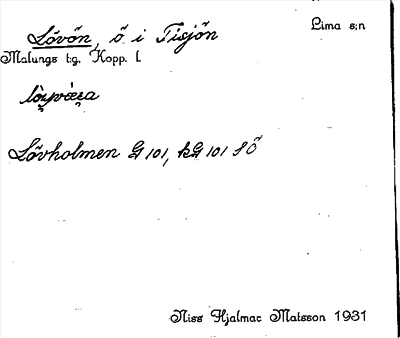 Lövön, ö i Tisjön
Lima s:n
Malungs t:g. Kopp. l.
Lövholmen G 101, kG 101 S Ö
Niss Hjalmar Matsson 1931